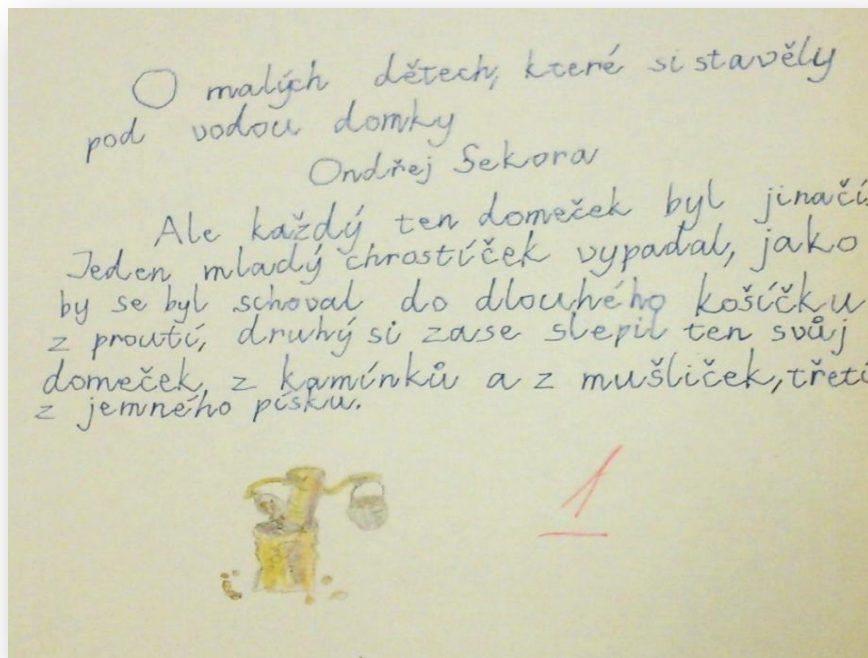 O malých dětech, které si stavěly
pod vodou domky
Ondřej Sekora
Ale každý ten domeček byl jinačí.
Jeden mladý chrostíček vypadal, jako
by se byl schoval do dlouhého košíčku
z proutí, druhý si zase slepil ten svůj
domeček, z kamínků a z mušliček, třetí
z jemného písku.
1